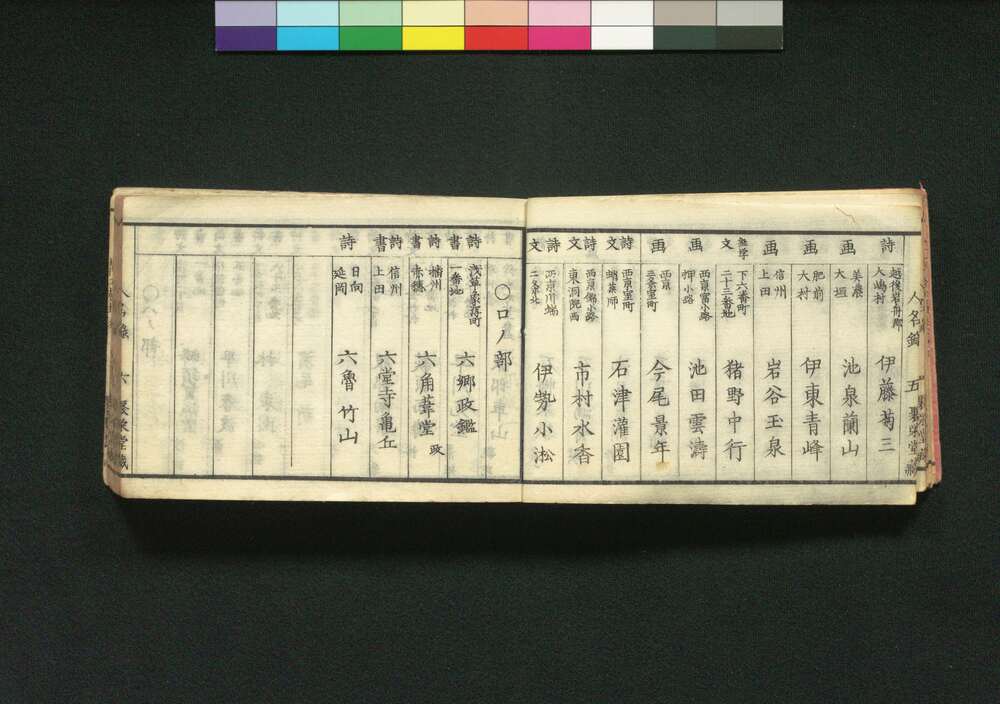 人名録 五
詩 越後岩舟郡 人嶋村 伊藤菊三
画 美濃 大垣 池泉蘭山
画 肥前 大村 伊東青峰
画 信州 上田 岩谷玉泉
文 下六番町 二十三番地 猪野中行
画 西京富小路 押小路 池田雲濤
画 西京 室町 今尾景年
詩文 西京室町 蛸薬師 石津灌園
詩文 西京錦小路 東洞院西 市村水香
詩文 西京川端 二条北 伊勢小淞
〇ロノ部
詩書 浅草 町 一番地 六郷政鑑
詩書 播州 赤穂 六角葦堂 政
詩書 信州 上田 六堂寺亀丘
詩 日向 延岡 六魯竹山
人名録 六